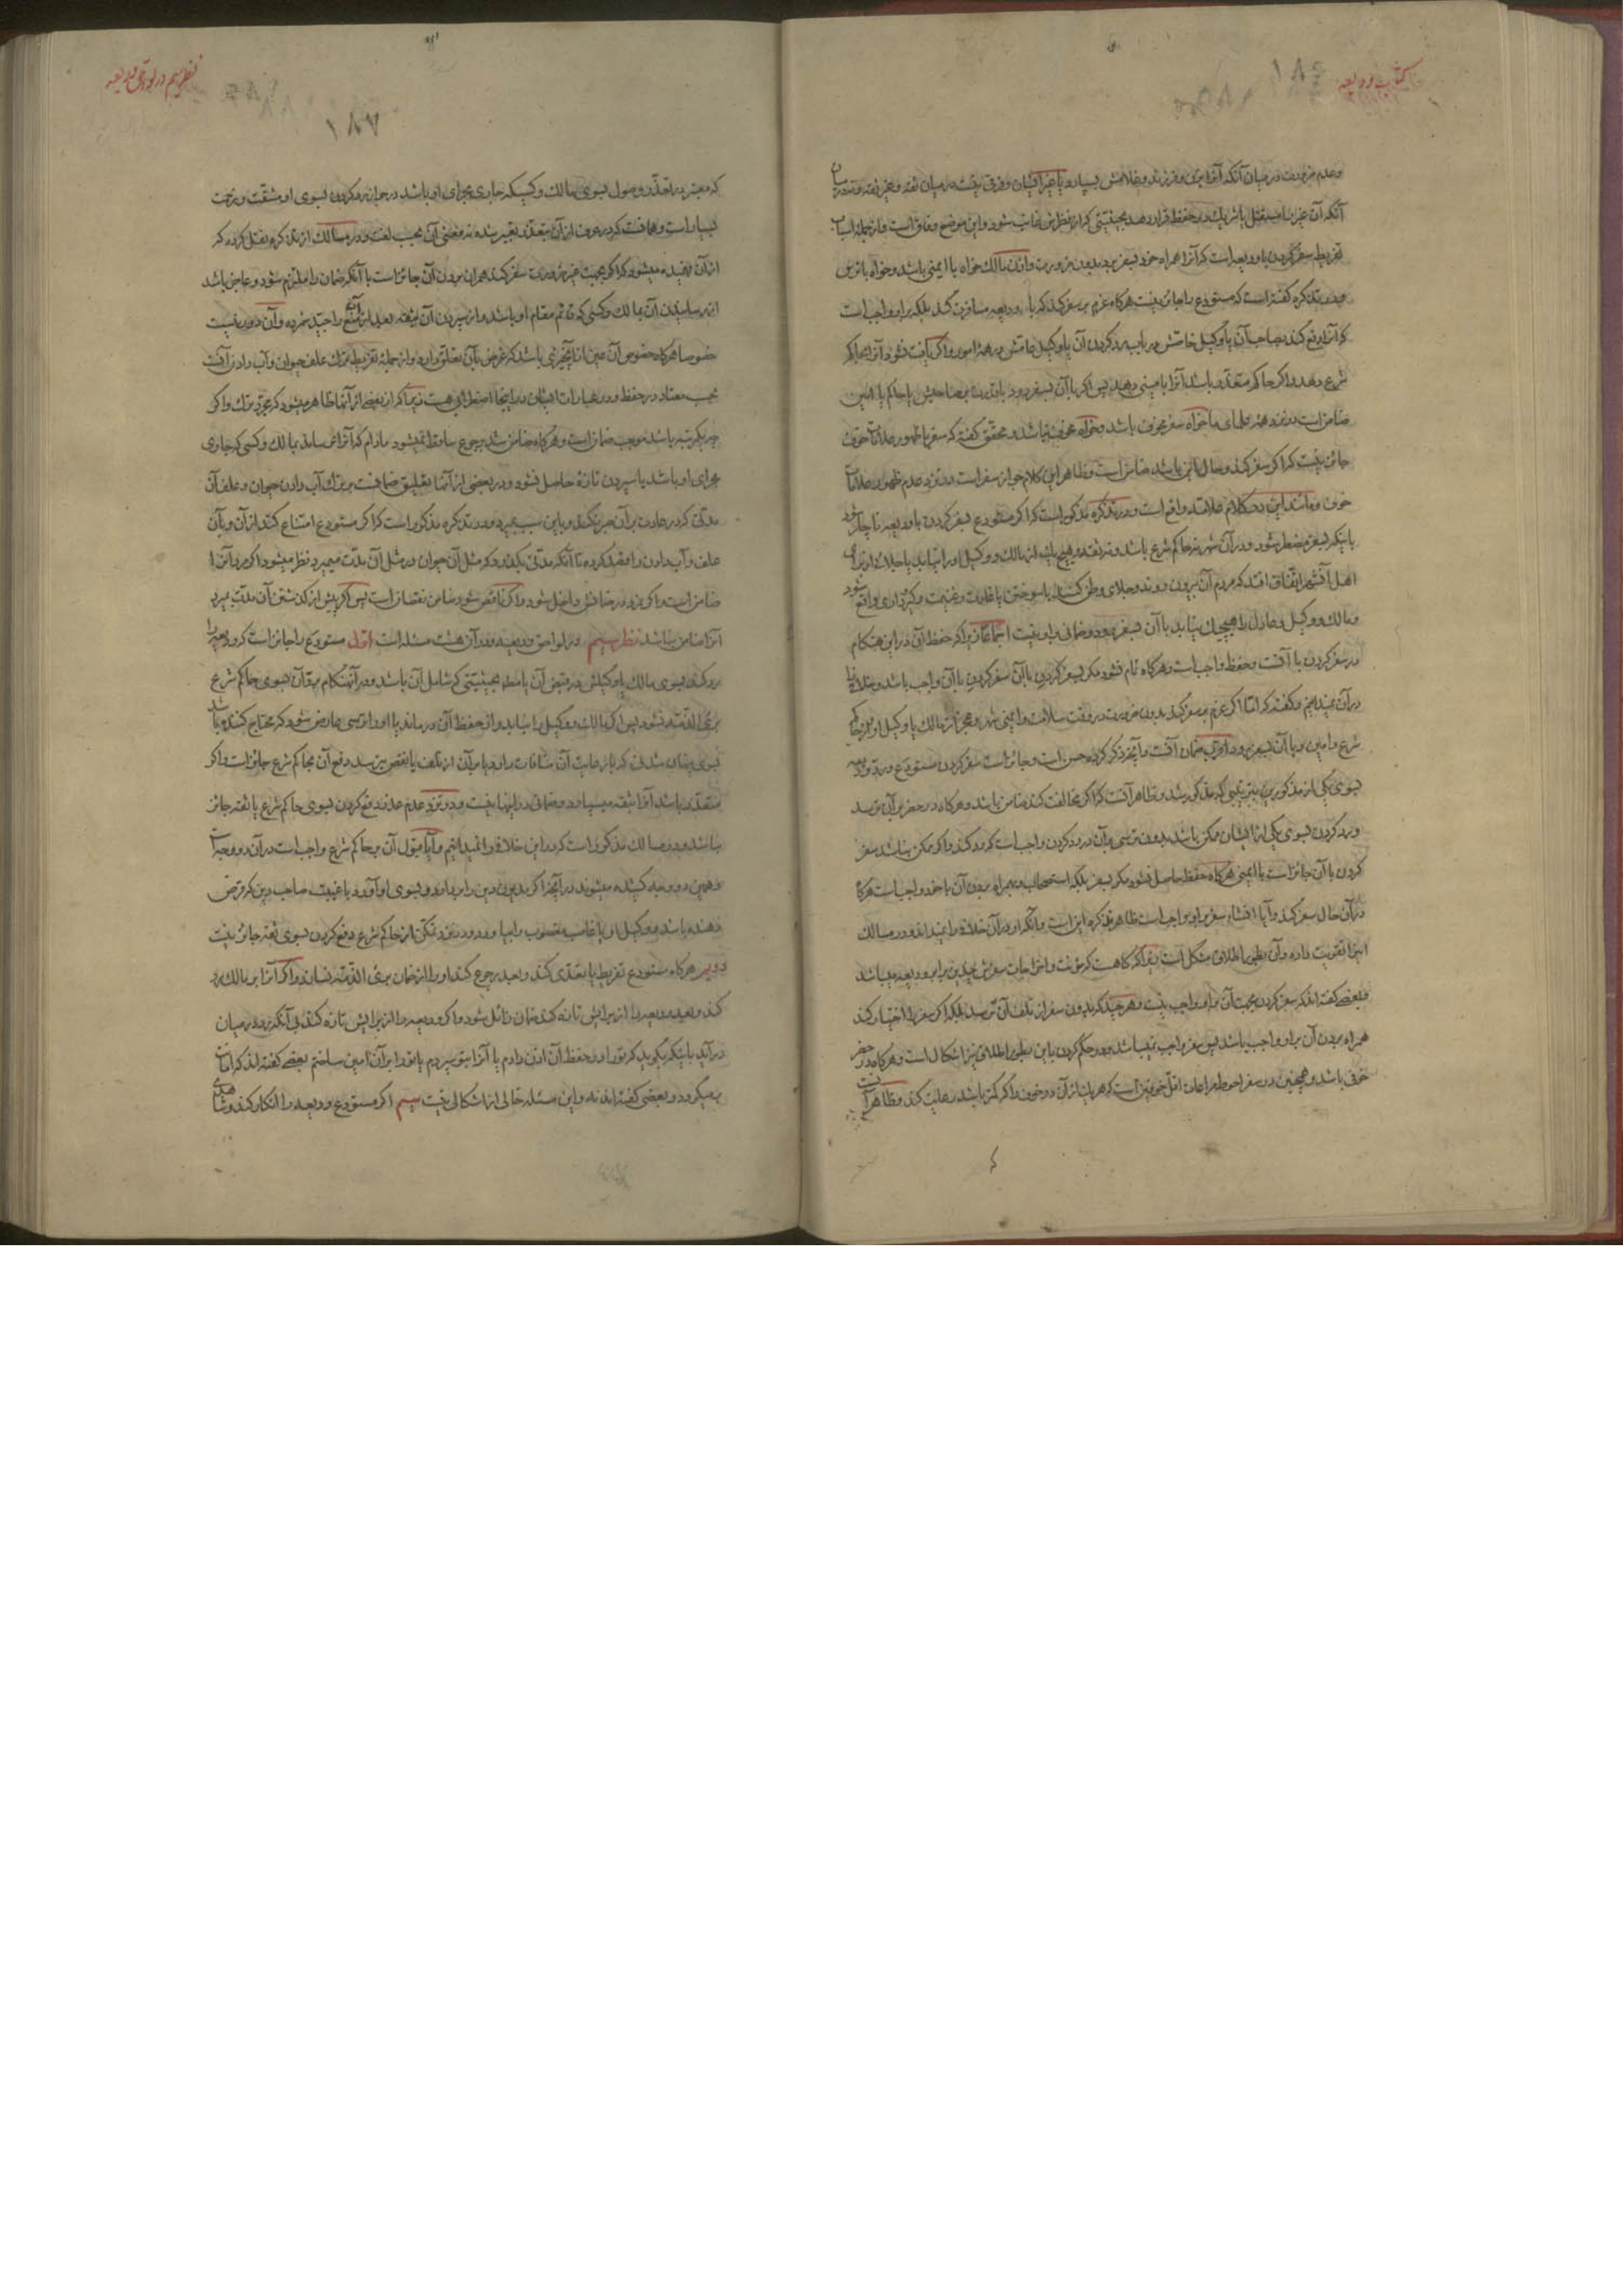 کتاب ودیعه
۱۸۶
وعدم ضرورت در میان آنکه آنرا بزن و فرزند و غلامش بسپارد یا بغیر ایشان و فرقی نیست در میان ثقه و غیر ثقه و نه در میان
آنکه آن غیر را مستقل یا شریک در حفظ قرار دهد بحیثیتی که از نظرش غایب شود و این موضع وفاق است و از جمله اسباب
تفریط سفر کردن با ودیعه است که آنرا همراه خود بسفر برد بدون ضرورت و اذن مالک خواه با ایمنی باشد و خواه با ترس
و در تذکره گفته است که مستودع را جائز نیست هرگاه عزم بر سفر کند که با ودیعه مسافرت کند بلکه بر او واجب است
که آنرا رد کند بصاحب آن یا وکیل خاصش در باب رد کردن آن یا وکیل عامش در همه امور و اگر یافت نشود آنرا بحاکم
شرع دهد و اگر حاکم متعذر باشد آنرا بامینی دهد پس اگر با آن بسفر رود با قدرت بر صاحبش یا حاکم یا امین
ضامن است در نزد همه علمای ما خواه سفر مخوف باشد و خواه مخوف نباشد و محقق گفته که سفر با ظهور علامات خوف
جائز نیست که اگر سفر کند و حال این باشد ضامن است و ظاهر این کلام جواز سفر است در نزد عدم ظهور علامات
خوف و مانند این در کلام علامه واقع است و در تذکره مذکور است که اگر مستودع بسفر کردن با ودیعه ناچار شود
باینکه بسفر مضطر شود و در آن شهر نه حاکم شرع باشد و نه ثقه و هیچ یک از مالک و وکیل او را نیابد یا جلاء از برای
اهل آنشهر اتفاق افتد که مردم آن بیرون روند و جلای وطن کنند یا سوختن یا غارت و غنیمت و کیرداری واقع شود
و مالک و وکیل و عادل را هیچیک نیابد با آن بسفر رود و ضمانی بر او نیست اجماعا زیرا که حفظ آن در این هنگام
در سفر کردن با آنست و حفظ واجب است و هرگاه تمام نشود مگر بسفر کردن با آن سفر کردن با آن واجب باشد و خلافی
در آن نمیدانیم و گفته که اما اگر عزم بر سفر کند بدون ضرورت در وقت سلامت و ایمنی شهر و عجز از مالک یا وکیل او و از حاکم
شرع و امین و با آن بسفر رود اقرب ضمان آنست و آنچه ذکر کرده حسن است و جائز است سفر کردن مستودع و رد ودیعه
بسوی یکی از مذکورین بترتیبی که مذکور شد و ظاهر آنست که اگر مخالفت کند ضامن باشد و هرگاه در حضر بر آن بترسد
و رد کردن بسوی یکی از ایشان ممکن باشد بدون ترسی بر آن در رد کردن واجب است که رد کند و اگر ممکن نباشد سفر
کردن با آن جائز است با ایمنی هرگاه حفظ حاصل نشود مگر بسفر بلکه استصحاب و همراه بردن آن با خود واجب است هرگاه
در آن حال سفر کند و آیا انشاء سفر بر او واجب است ظاهر تذکره این است و آنکه او در آن خلافی را نمیداند و در مسالک
این را تقویت داده و آن بطور اطلاق مشکل است زیرا که گاهست که مؤنت و اخراجات سفرش چندین برابر ودیعه میباشد
و بعضی گفته اند که سفر کردن بجهت آن بر او واجب نیست و هرچند که بدون سفر از تلف آن بترسد بلکه اگر سفر را اختیار کند
همراه بردن آن بر او واجب باشد پس سفر واجب نمیباشد و در حکم کردن باین بطور اطلاق نیز اشکال است و هرگاه در حضر
خوفی باشد و همچنین در سفر احوط مراعات اقل خوفین است که هر یک از آن دو خوف و اگر کمتر باشد رعایت کند و ظاهر آنست
نظر سیم در لواحق ودیعه
۱۸۷
که معتبر در تعذر وصول بسوی مالک و کسیکه جاری مجرای او باشد در جواز رد کردن بسوی او مشقت و زحمت
بسیار است و همانست که در عرف از آن بتعذر تعبیر شده نه معنی آن بحسب لغت و در مسالک از تذکره نقل کرده که
از آن فهمیده میشود که اگر بجهت غیر ضرورت سفر کند همراه بردن آن جائز است با آنکه ضمان را ملتزم شود و عاجز باشد
از رسانیدن آن بمالک و کسی که قائم مقام او باشد و از سپردن آن بثقه بعد از آن منع را جید شمرده و آن دور نیست
خصوصا هرگاه خصوص آن عین از آنچیزی باشد که غرض بآن تعلق دارد و از جمله تفریط ترک علف حیوان و آب دادن آنست
بحسب معتاد در حفظ و در عبارات ایشان در اینجا اضطرابی هست زیرا که از بعضی از آنها ظاهر میشود که مجرد ترک و اگر
چه یکمرتبه باشد موجب ضمان است و هرگاه ضامن شد برجوع ساقط نمیشود مادام که آنرا نرساند بمالک و کسی که جاری
مجرای او باشد یا سپردن تازه حاصل نشود و در بعضی از آنها تعلیق ضمانست بر ترک آب دادن حیوان و علف آن
مدتی که در عادت بر آن صبر نکند و باین سبب بمیرد و در تذکره مذکور است که اگر مستودع امتناع کند از آن و بآن
علف و آب دادن را قصد کرده تا آنکه مدتی بگذرد که مثل آن حیوان در مثل آن مدت میمیرد نظر میشود اگر مرد آنرا
ضامن است و اگر نمرد در ضمانش داخل شود و اگر ناقص شود ضامن نقصان است پس اگر پیش از گذشتن آن مدت بمیرد
آنرا ضامن نباشد نظر سیم در لواحق ودیعه و در آن هشت مسئله است اول مستودع را جائز است که ودیعه را
رد کند بسوی مالک یا وکیلش در قبض آن یا مطلق بحیثیتی که شامل آن باشد و در آنهنگام برد آن بسوی حاکم شرع
بری الذمه نشود پس اگر مالک و وکیل را نیابد و از حفظ آن درماند یا او را ترسی عارض شود که محتاج کننده باشد
بسوی پنهان شدنی که با رعایت آن منافات دارد یا بر آن از تلف یا نقص بترسد دفع آن بحاکم شرع جائز است و اگر
متعذر باشد آنرا بثقه میسپارد و ضمانی در اینها نیست و در نزد عدم عذر دفع کردن بسوی حاکم شرع یا ثقه جائز
نباشد و در مسالک مذکور است که در این خلافی را نمیدانیم و آیا قبول آن بر حاکم شرع واجب است در آن دو وجه است
و همین دو وجه کشیده میشوند در آنچه اگر مدیون دین را بردارد و بسوی او آورد با غیبت صاحب دین که قرض
دهنده باشد و وکیل او یا غاصب مغصوب را بیاورد و در نزد تمکن از حاکم شرع دفع کردن بسوی ثقه جائز نیست
دویم هرگاه مستودع تفریط یا تعدی کند و بعد رجوع کند او را از ضمان بری الذمه نسازد و اگر آنرا بر مالک رد
کند و بعد ودیعه را از برایش تازه کند ضمان زائل شود و اگر ودیعه را از برایش تازه کند بی آنکه رد در میان
در آید باینکه بگوید که تو را در حفظ آن اذن دادم یا آنرا بتو سپردم یا تو را بر آن امین ساختم بعضی گفته اند که امانت
برمیگردد و بعضی گفته اند نه و این مسئله خالی از اشکالی نیست سیم اگر مستودع ودیعه را انکار کند و شاهدی